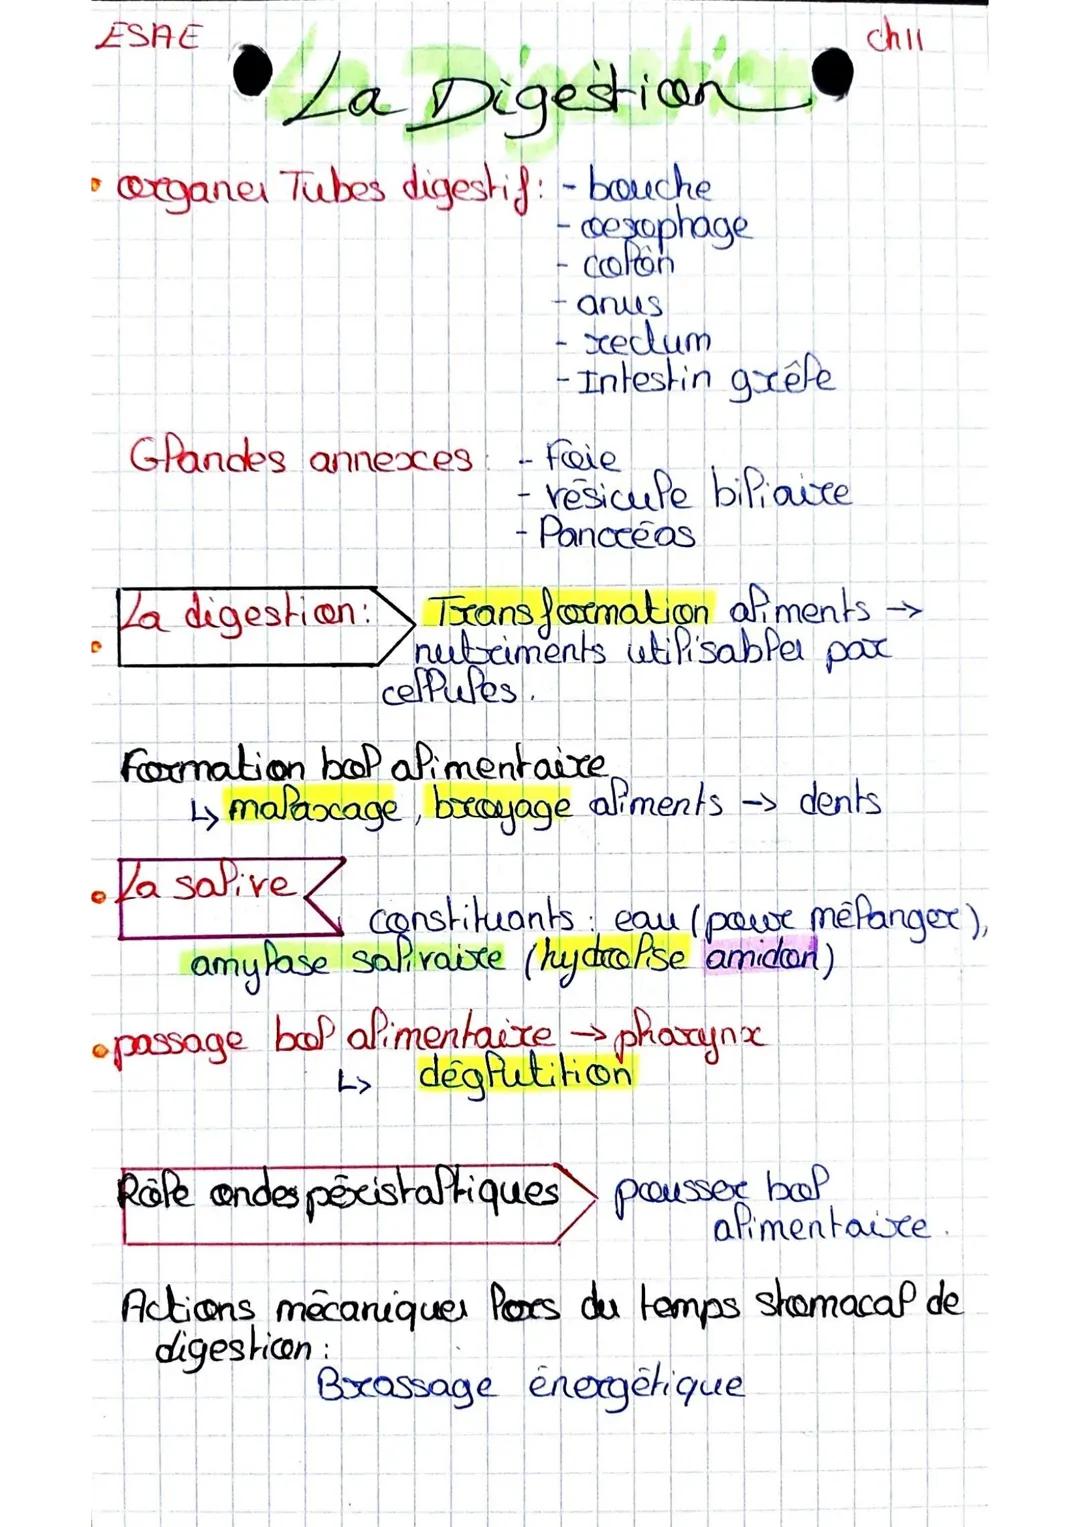 ESAE
ch11
La Digestion
organes Tubes digestif: - bouche
- oesophage
- colôn
- anus
- rectum
- Intestin grêle
Glandes annexes: - Foie
- vésicule biliaire
- Pancréas
La digestion: Transformation aliments →
nutriments utilisables par
cellules.
Formation bol alimentaire
↳ malaxage, broyage aliments → dents
La salive
constituants: eau (pour mélanger),
amylase salivaire (hydrolise amidon)
passage bol alimentaire → pharynx
↳ déglutition
Rôle ondes péristaltiques pousser bol
alimentaire.
Actions mécaniques lors du temps stomacal de
digestion:
Brassage énergétique